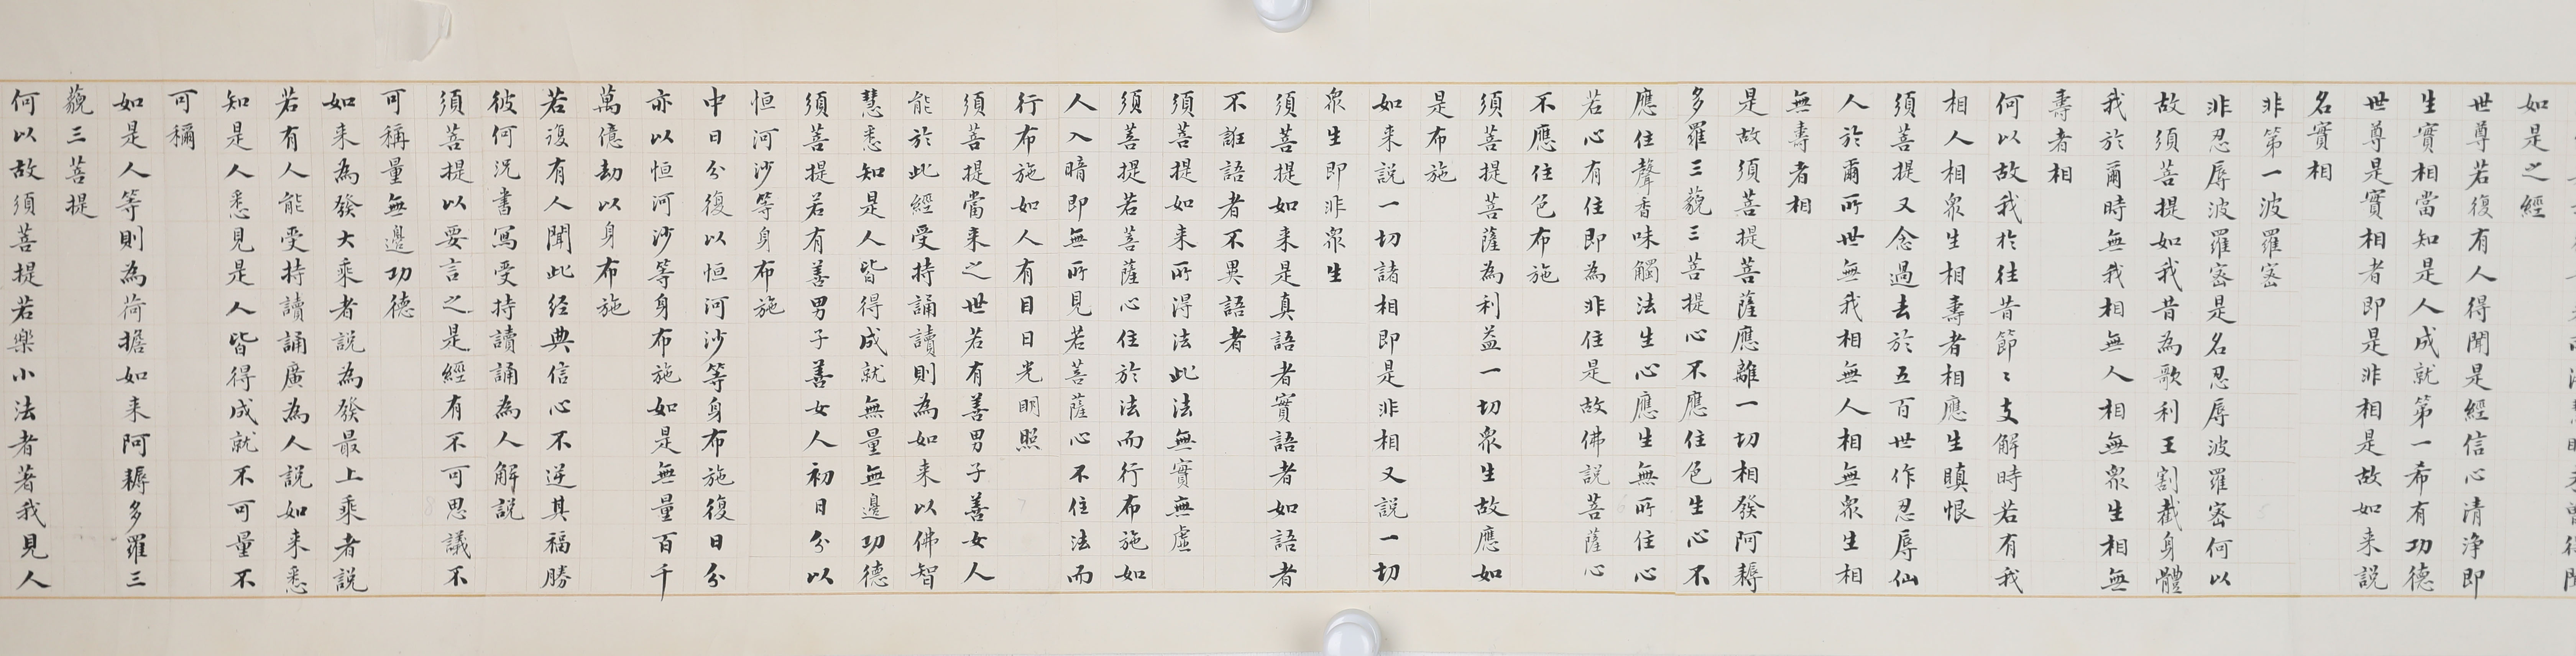 如是之經
世尊若復有人得聞是經信心清淨即
生實相當知是人成就第一希有功德
世尊是實相者即是非相是故如来説
名實相
非第一波羅蜜
非忍辱波羅蜜是名忍辱波羅蜜何以
故須菩提如我昔為歌利王割截身體
我於爾時無我相無人相無衆生相無
壽者相
何以故我於往昔節〻支解時若有我
相人相衆生相壽者相應生瞋恨
須菩提又念過去於五百世作忍辱仙
人於爾所世無我相無人相無衆生相
無壽者相
是故須菩提菩薩應離一切相發阿耨
多羅三藐三菩提心不應住色生心不
應住聲香味觸法生心應生無所住心
若心有住即為非住是故佛説菩薩心
不應住色布施
須菩提菩薩為利益一切衆生故應如
是布施
如来説一切諸相即是非相又説一切
衆生即非衆生
須菩提如来是真語者實語者如語者
不誑語者不異語者
須菩提如来所得法此法無實無虛
須菩提若菩薩心住於法而行布施如
人入暗即無所見若菩薩心不住法而
行布施如人有目日光明照
須菩提當来之世若有善男子善女人
能於此經受持誦讀則為如来以佛智
慧悉知是人皆得成就無量無邊功德
須菩提若有善男子善女人初日分以
恒河沙等身布施
中日分復以恒河沙等身布施復日分
亦以恒河沙等身布施如是無量百千
萬億劫以身布施
若復有人聞此经典信心不逆其福勝
彼何況書寫受持讀誦為人解説
須菩提以要言之是經有不可思議不
可稱量無邊功德
如来為發大乘者説為發最上乘者説
若有人能受持讀誦廣為人説如来悉
知是人悉見是人皆得成就不可量不
可稱
如是人等則為荷擔如来阿耨多羅三
藐三菩提
何以故須菩提若樂小法者著我見人